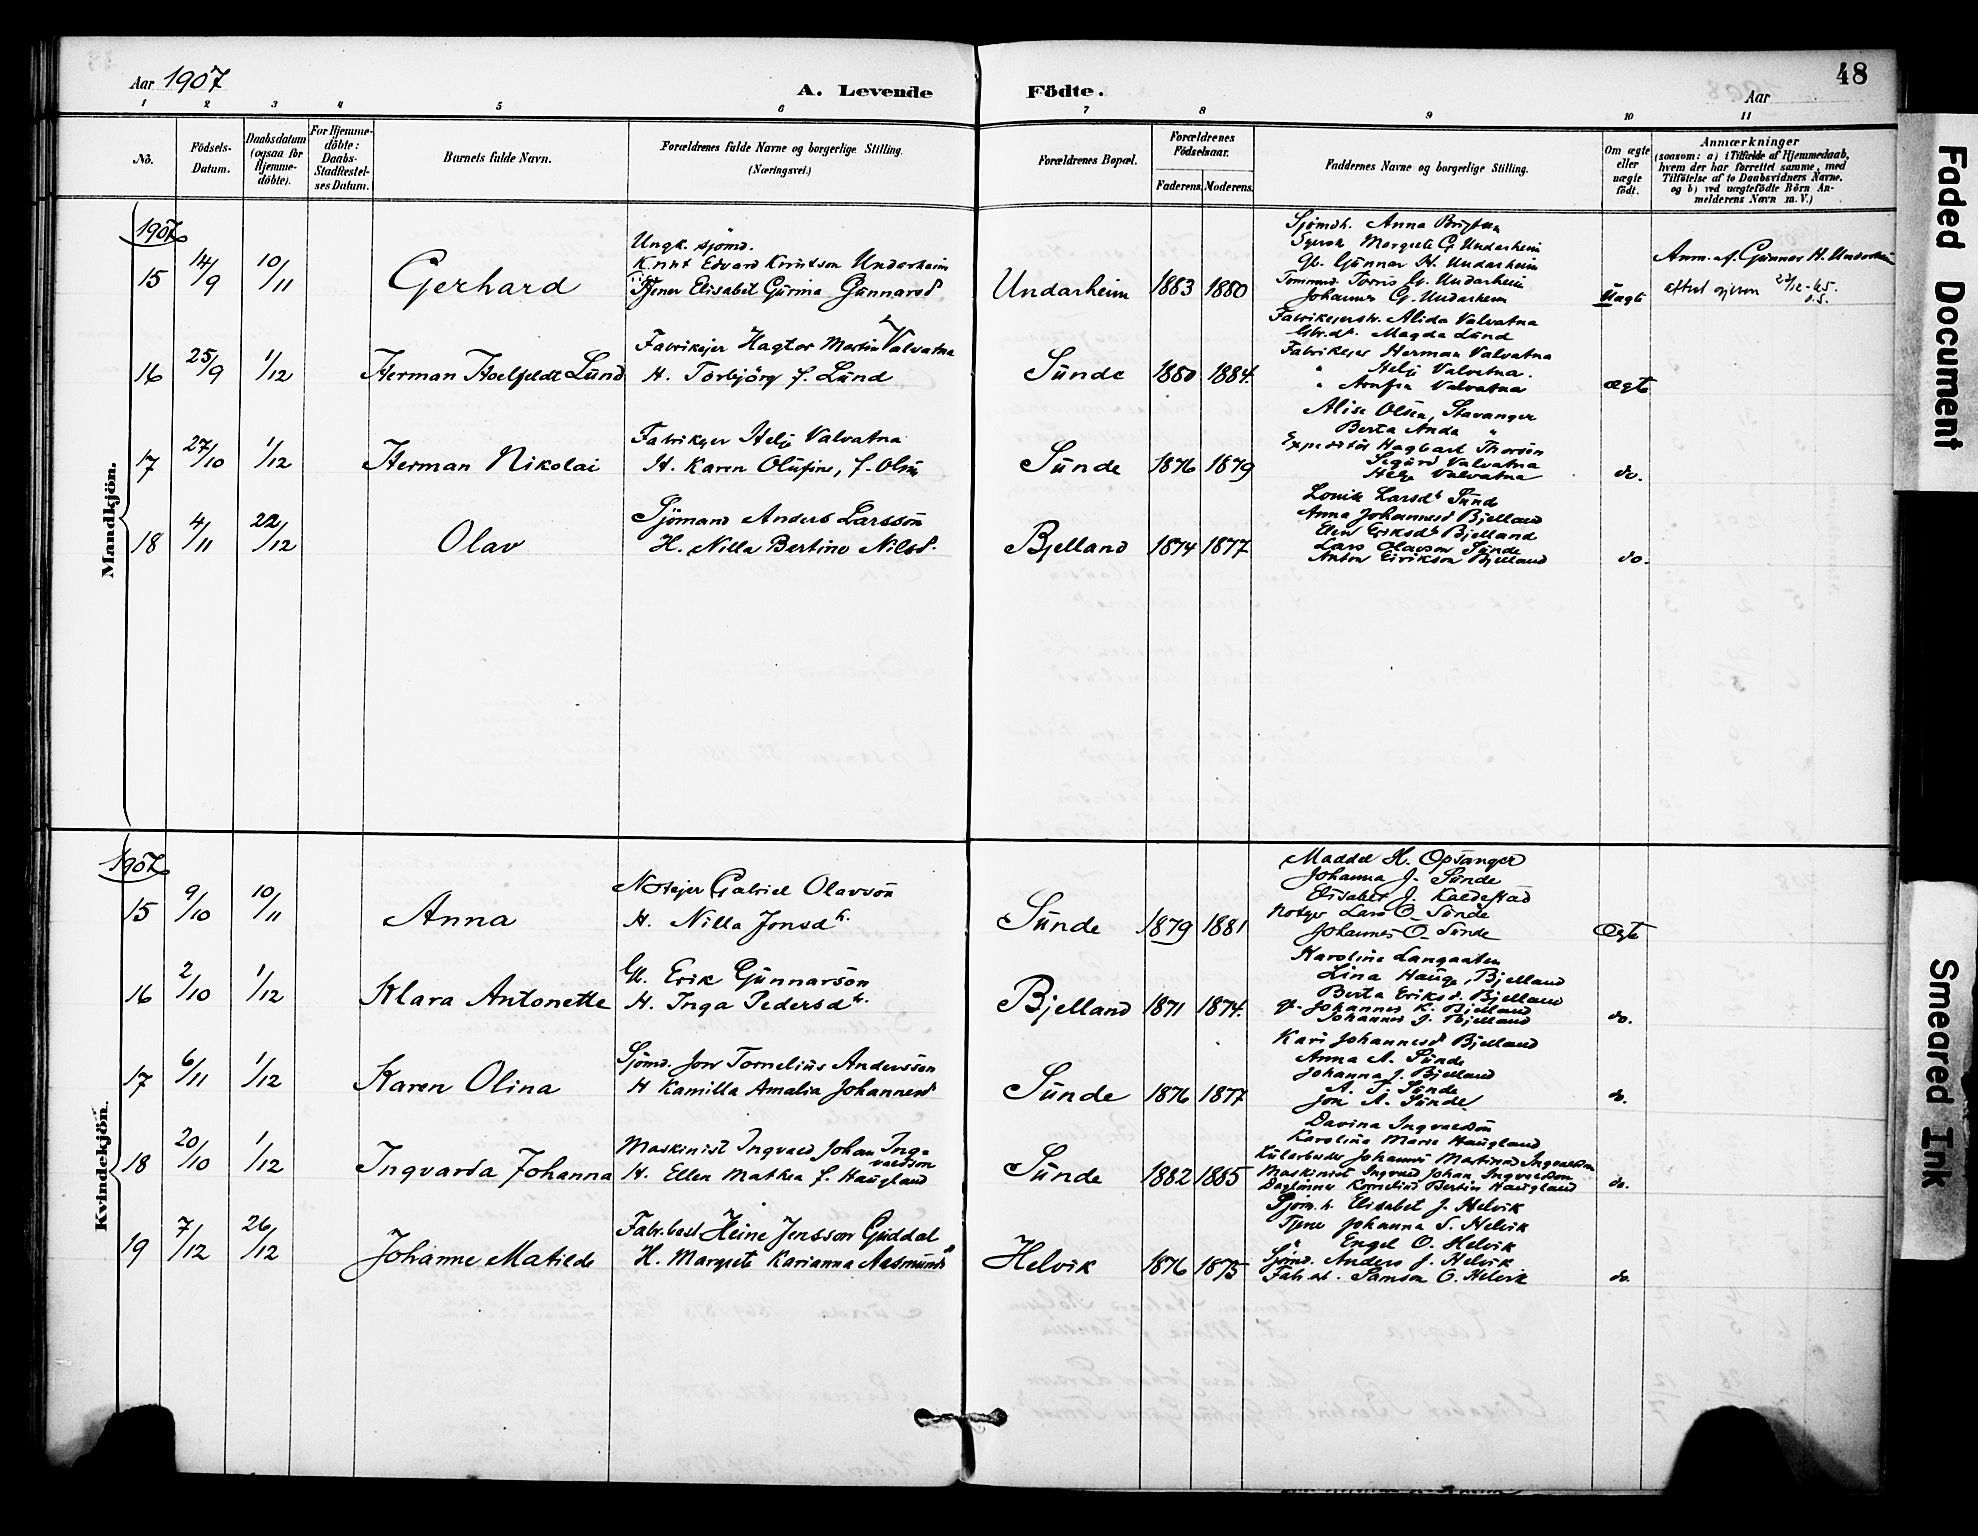 Aar 1907
A. Levende Födte.
Aar
48
1 2 3 4 5 6 7 8 9 10 11
No.
Födsels-Datum.
Daabsdatum (ogsaa for Hjemme-döbte).
For Hjemme-döbte: Daabs-Stadfæstel-ses Datum.
Barnets fulde Navn.
Forældrenes fulde Navne og borgerlige Stilling. (Næringsvei.)
Forældrenes Bopæl.
Forældrenes Födselsaar.
Faderens. Moderens.
Faddernes Navne og borgerlige Stilling.
Om ægte eller uægte födt.
Anmærkninger
(saasom: a) i Tilfælde af Hjemmedaab,
hvem der har forrettet samme, med
Tilföielse af to Daabsvidners Navne,
og b) ved uægtefödte Börn An-
melderens Navn m. V.)
Mandkjön.
1907
15 14/9 10/11 Gerhard
Ungk. sjömd.
Knut Edvard Knutson Undarheim
Tjener Elisabet Gurina Gunnarsd
Undarheim 1883 1880
Sjömdh. Anna
Margrete G. Undarheim
Gb. Gunnar H. Undarheim
Tommerm. Torris G. Undarheim
Johannes G. Undarheim
Uægte
Anm. af Gunnar H. Undarheim
16 25/9 1/12 Herman Hoelfeldt Lund
Fabrikejer Hagtor Martin Valvatna
H. Torbjörg f. Lund
Sunde 1880 1884.
Fabrikejerstr. Alida Valvatna
Gbr.dt. Magda Lund
Fabrikejer Herman Valvatna
" Helje Valvatna.
" Valvatna
ægte
17 27/10 1/12 Herman Nikolai
Fabrikejer Helje Valvatna
H. Karen Olufine, f. Olsen
Sunde 1876 1879
Alise Olsen, Stavanger
Berta Anda "
Expeditör Hagbart Thorsen
Sigurd Valvatna
Helge Valvatna
do.
18 4/11 22/12 Olav
Sjömand Anders Larsson
H. Nilla Bertine Nilsd.
Bjelland 1874 1877
Lovise Larsdt Sund
Anna Johannesd Bjelland
Elen Eriksdt Bjelland
Lars Olavson Sunde
Anton Eirikson Bjelland
do.
Kvindekjön.
1907
15 9/10 10/11 Anna
Notejer Gabriel Olavson
H. Nilla Jonsdtr.
Sunde 1879 1881
Maddel H. Opsanger
Johanna J. Sunde
Elisabet J. Kaldestad
Notejer Lars O. Sunde
Johannes O. Sunde
Ægte
16 2/10 1/12 Klara Antonette
Gb. Erik Gunnarson
H. Inga Pedersdtr.
Bjelland 1871 1874.
Karoline Langaaten
Lina Hauge, Bjelland
Berta Eriksd. Bjelland
Gb. Johannes K. Bjelland
Johannes J. Bjelland
do.
17 6/11 1/12 Karen Olina
Sjömd. Jon Tornelius Andersson
H Kamilla Amalia Johannesd
Sunde 1876 1877
Kari Johannesd Bjelland
Anna A. Sunde
Johanna J. Bjelland
A. T. Sunde
Jon A. Sunde
do.
18 20/10 1/12 Ingvarda Johanna
Maskinist Ingvald Johan Ing-
valdson
H. Ellen Mathea f. Haugland
Sunde 1882 1885
Davina Ingvaldson
Karoline Marie Haugland
Johannes Martinus Ingvaldson
Maskinist Ingvald Johan Ingvaldson
Daglönner Kornelius Bertin Haugland
do.
19 7/12 26/12 Johanne Matilde
Fabr.best Heine Jensson Guddal
H. Margrete Karianna Aasmunds
Helvik 1876 1875
Sjöm.h. Elisabet J. Helvik
Tjene Johanna S. Helvik
" Engel O. Helvik
Sjömd. Anders J. Helvik
Fabr.arb. Samson O. Helvik
do.
Faded Document
Smeared Ink